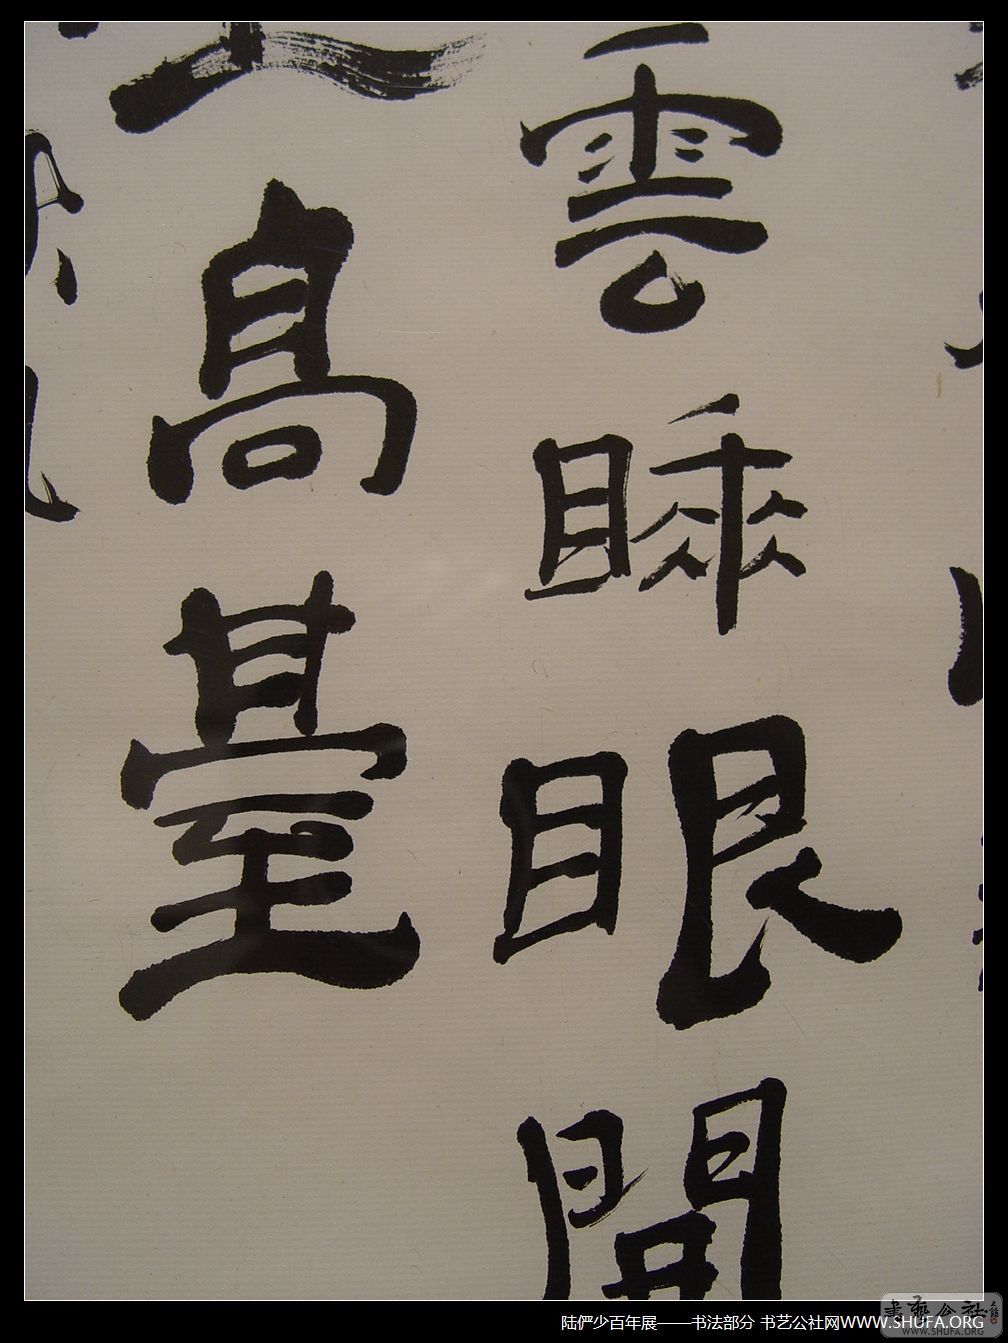 雲睡眼開
高臺
陆俨少百年展——书法部分 书艺公社网WWW.SHUFA.ORG
书艺公社
WWW.SHUFA.ORG